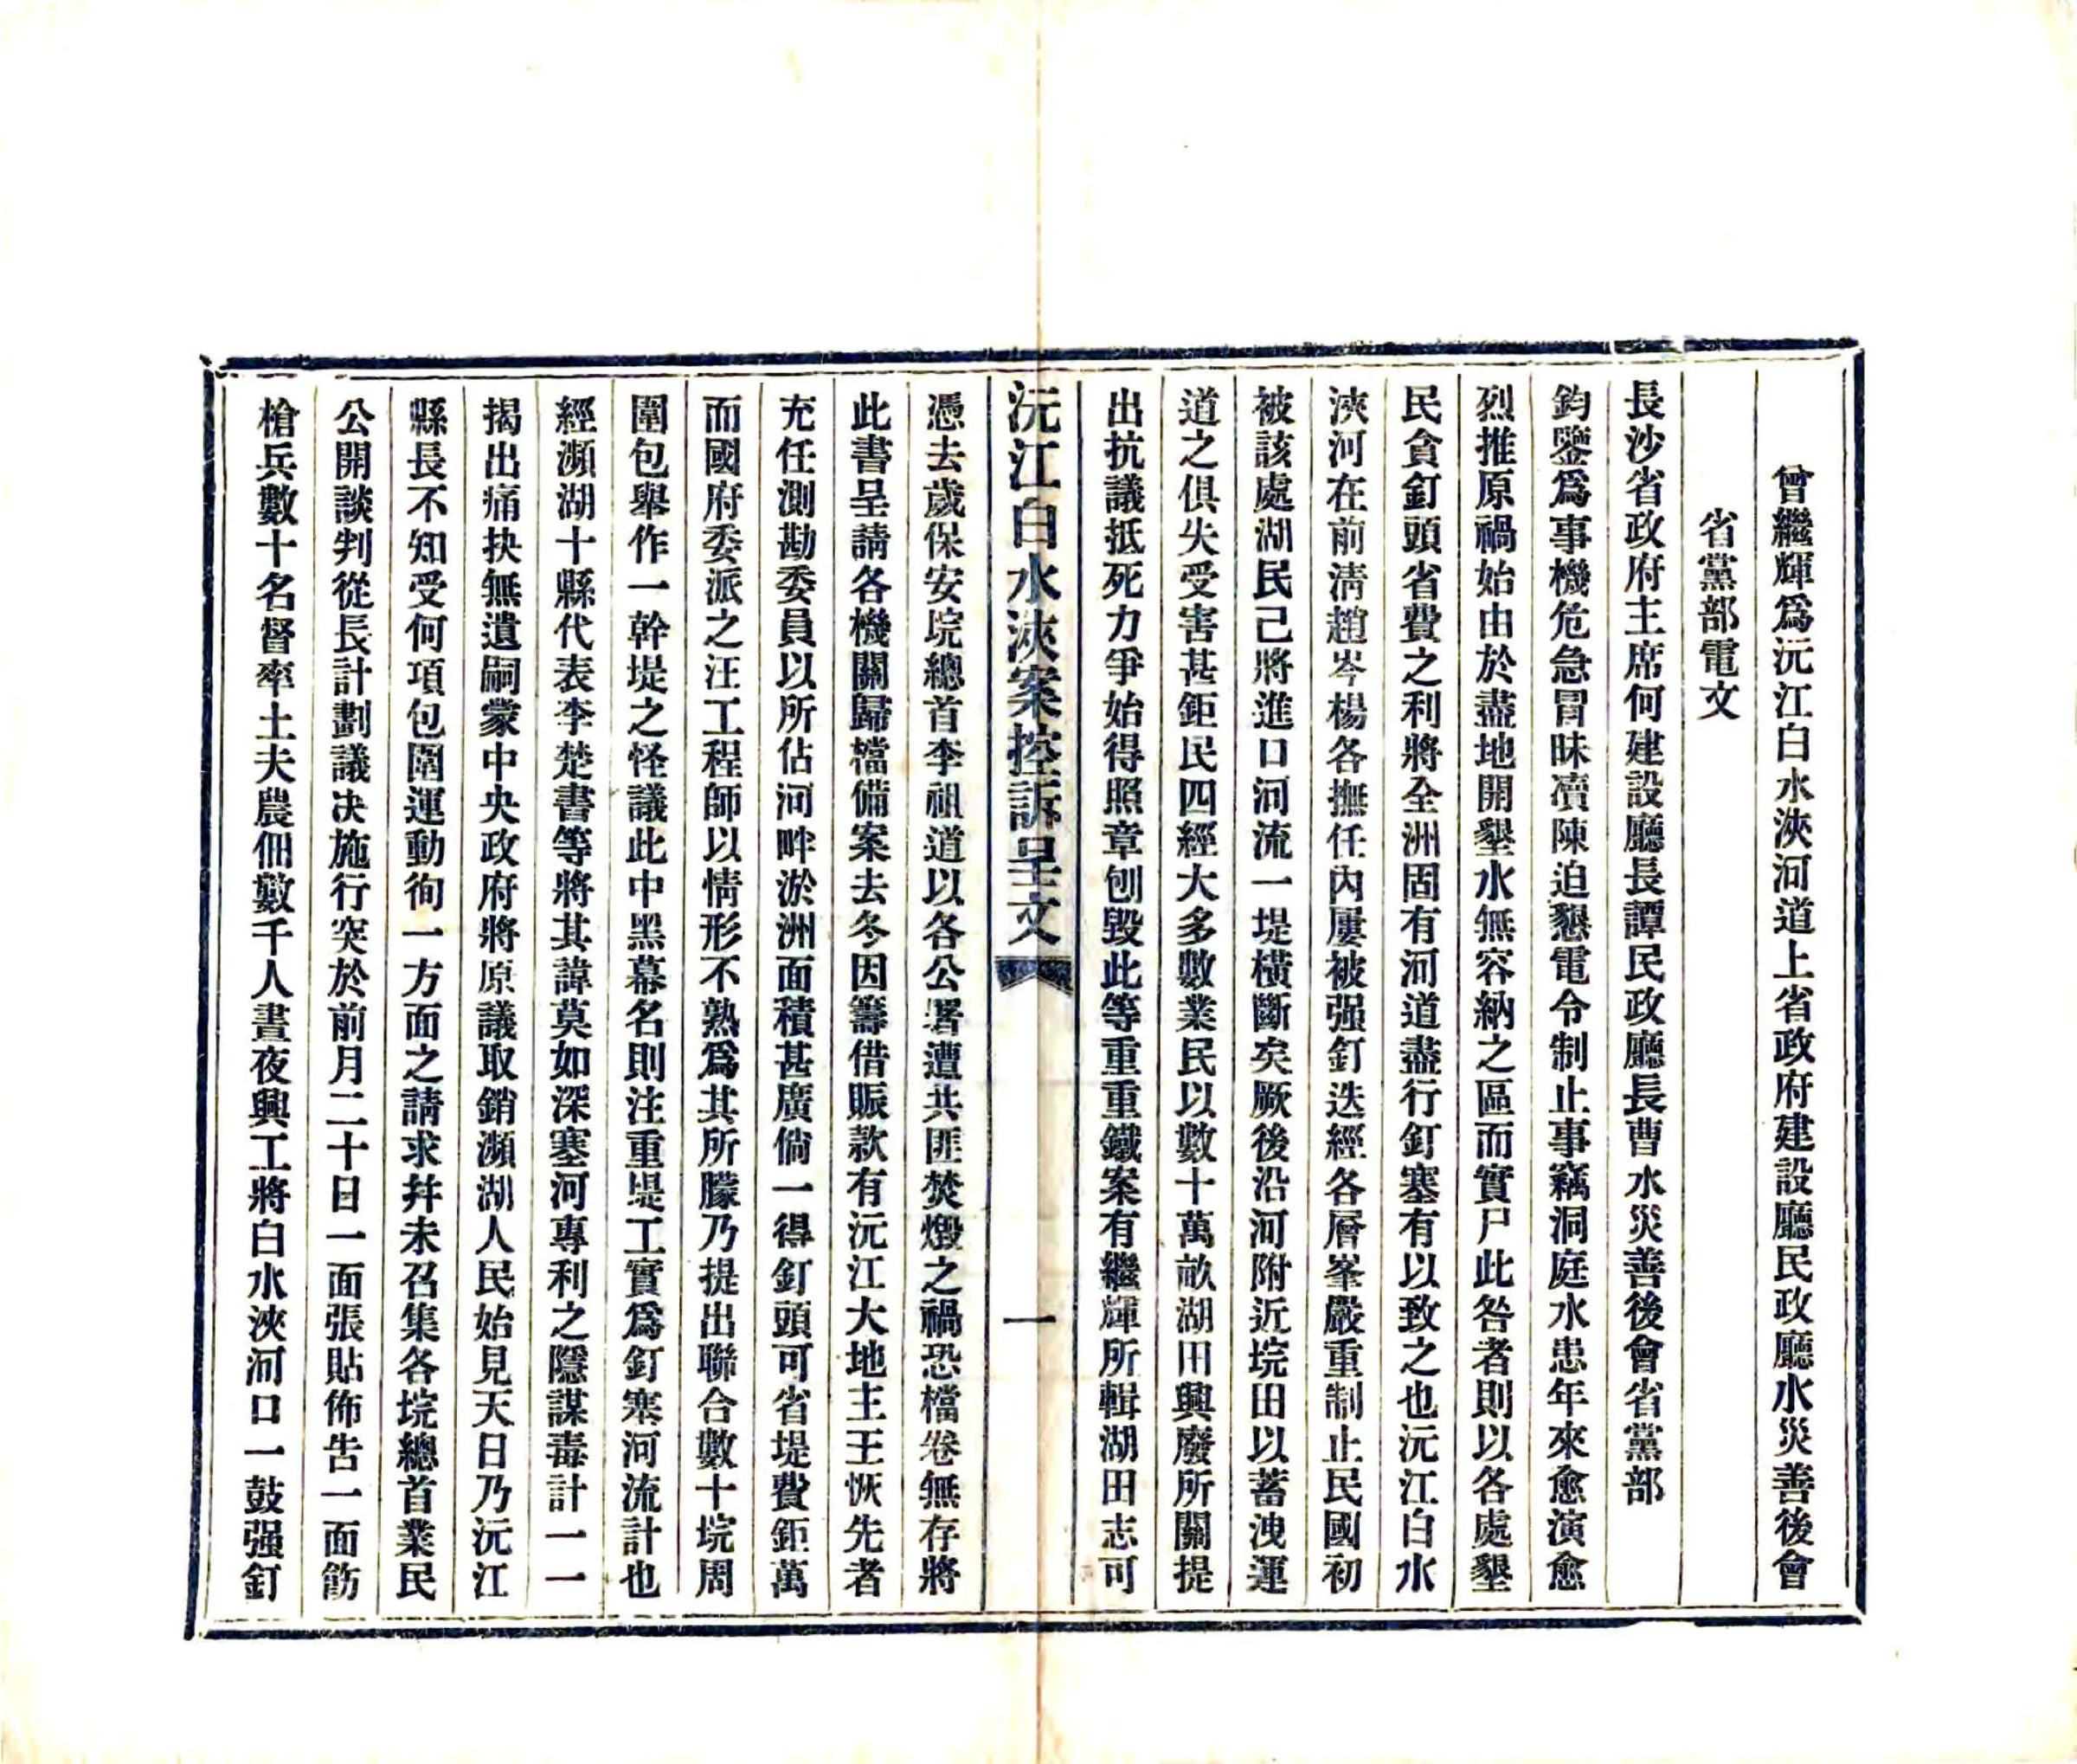 曾繼輝爲沅江白水浹河道上省政府建設廳民政廳水災善後會
省黨部電文
長沙省政府主席何建設廳長譚民政廳長曹水災善後會省黨部
鈞鑒爲事機危急冒昧凟陳迫懇電令制止事竊洞庭水患年來愈演愈
烈推原禍始由於盡地開墾水無容納之區而實尸此咎者則以各處墾
民貪釘頭省費之利將全洲固有河道盡行釘塞有以致之也沅江白水
浹河在前淸趙岑楊各撫任內屢被强釘迭經各層峯嚴重制止民國初
被該處湖民己將進口河流一堤橫斷矣厥後沿河附近垸田以蓄洩運
道之俱失受害甚鉅民四經大多數業民以數十萬畝湖田興廢所關提
出抗議抵死力爭始得照章刨毀此等重重鐵案有繼輝所輯湖田志可
沅江白水浹案控訴呈文 一
憑去歲保安垸總首李祖道以各公署遭共匪焚燬之禍恐檔卷無存將
此書呈請各機關歸檔備案去冬因籌借賑款有沅江大地主王恢先者
充任測勘委員以所佔河畔淤洲面積甚廣倘一得釘頭可省堤費鉅萬
而國府委派之汪工程師以情形不熟爲其所朦乃提出聯合數十垸周
圍包舉作一幹堤之怪議此中黑幕名則注重堤工實爲釘塞河流計也
經瀕湖十縣代表李楚書等將其諱莫如深塞河專利之隱謀毒計一一
揭出痛抉無遺嗣蒙中央政府將原議取銷瀕湖人民始見天日乃沅江
縣長不知受何項包圍運動徇一方面之請求幷未召集各垸總首業民
公開談判從長計劃議决施行突於前月二十日一面張貼佈告一面飭
槍兵數十名督率土夫農佃數千人晝夜興工將白水浹河口一鼓强釘